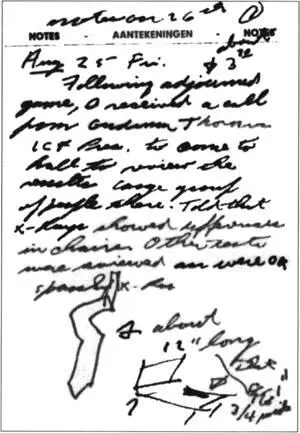 notes on 26th ①
NOTES AANTEKENINGEN NOTES
Aug 25 Fri.
Following adjourned
game, I received a call
from
to come to
hall to review the
results large group
of people there. Told that
X-Rays showed differences
in chairs Other tests
were reviewed all were OK
X-Ray
about
12" long
that
3/4 wide